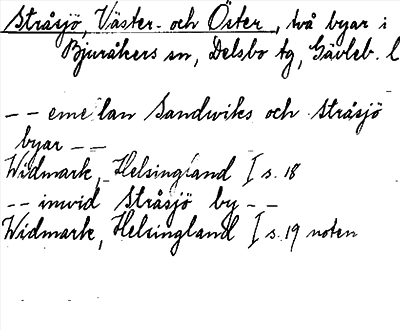 Stråsjö, Väster- och Öster, två byar i
Bjuråkers sn, Delsbo tg, Gävleb. l
-- emellan Sandwiks och Stråsjö
byar --
Widmark, Helsingland I s. 18
-- inwid Stråsjö by --
Widmark, Helsingland I s. 19 noten